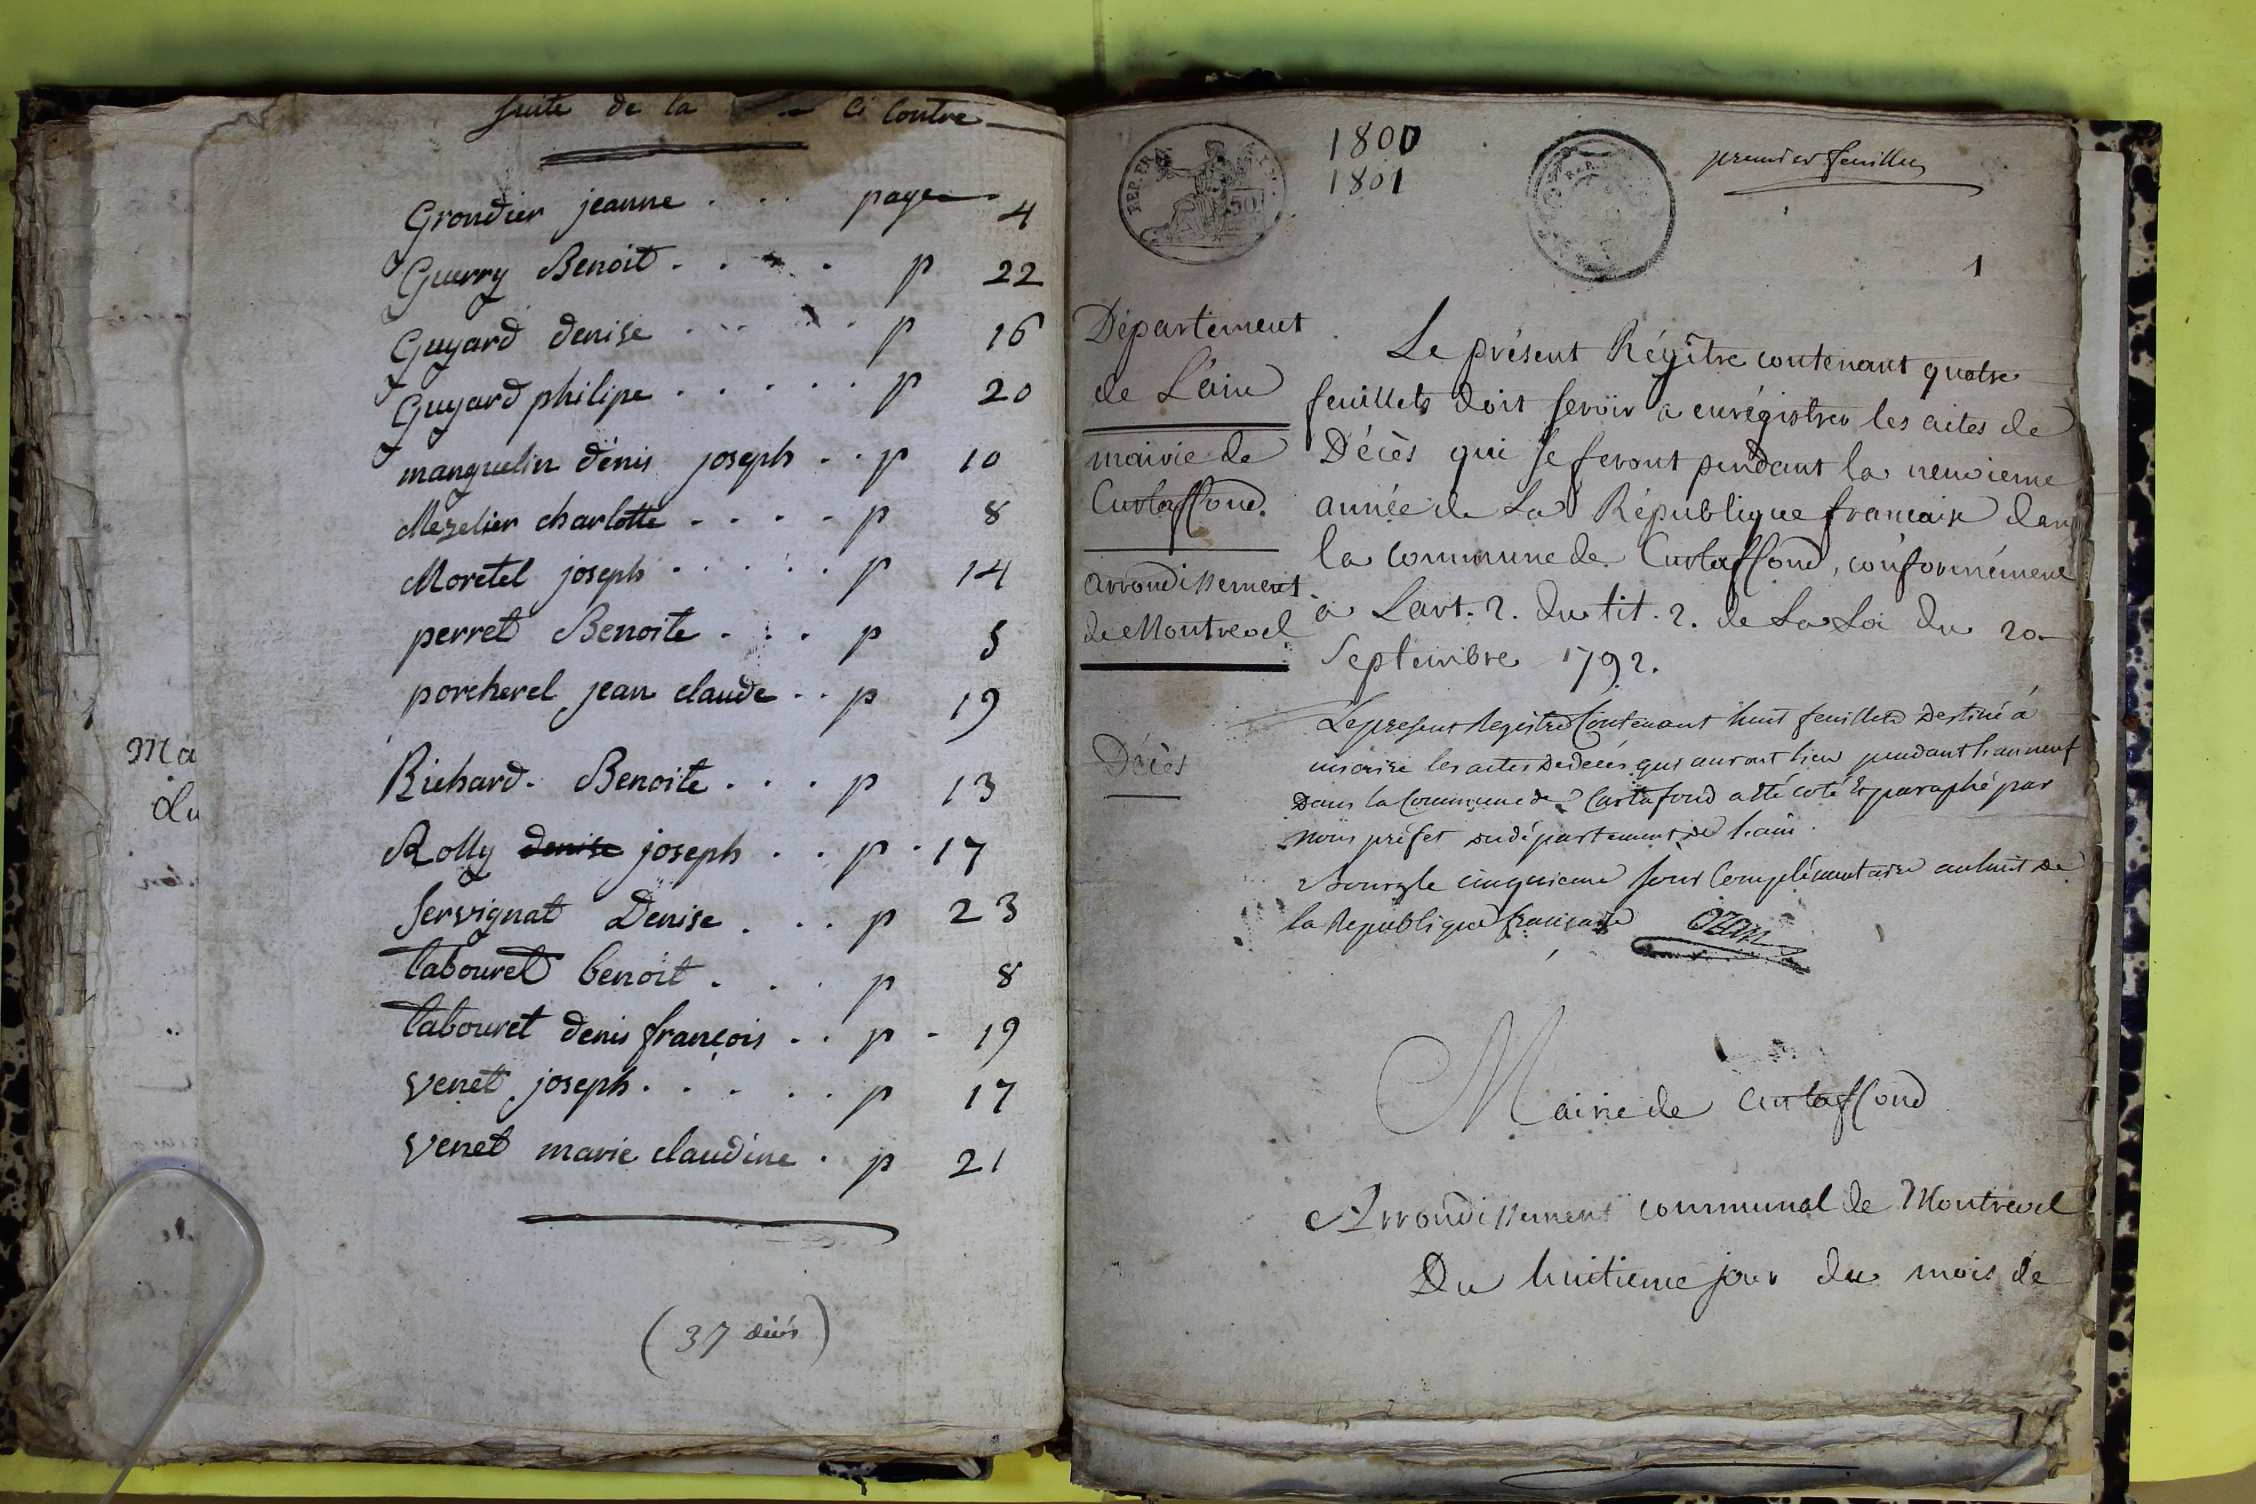 suite de la ci contre
Grondier jeanne . . . page 4
Guerry Benoit . . . . p 22
Guyard denise . . . . . p 16
Guyard philipe . . . . . p 20
manguelin dénis joseph . . p 10
Mezelier charlotte . . . . p 8
Moretel joseph . . . . . p 14
perret Benoite . . . p 5
porcherel jean claude . . p 19
Richard. Benoite . . . p 13
Rolly denise joseph . . p . 17
Servignat Denise . . . p 23
tabouret benoit . . . p 8
tabouret denis françois . . p - 19
Venet joseph . . . . . p 17
Venet marie claudine . p 21
(37 décès)
Ma
du
1800
1801
premier feuillet
REP. FRA
50
1
Département
de L'ain
mairie de
Curtaffond.
arrondissement
de Montrevel
Décès
Le présent Régitre contenant quatre
feuillets doit servir a enrégistrer les actes de
Décès qui se feront pendant la neuvieme
année de La République francaise dans
la commune de Curtaffond, conformément
à Lart. 2. du tit. 2. de La Loi du 20
Septembre 1792.
Le present Registre Contenant huit feuillets Destiné à
inscrire les actes de décès qui auront lieu pendant l'an neuf
Dans la Commune de Curtafond a été coté & paraphé par
nous préfet du département de l'ain.
Bourg le cinquieme jour Complémentaire an huit de
la Republique française Ozun
Mairie de Curtaffond
Arrondissement communal de Montrevel
Du huitieme jour du mois de